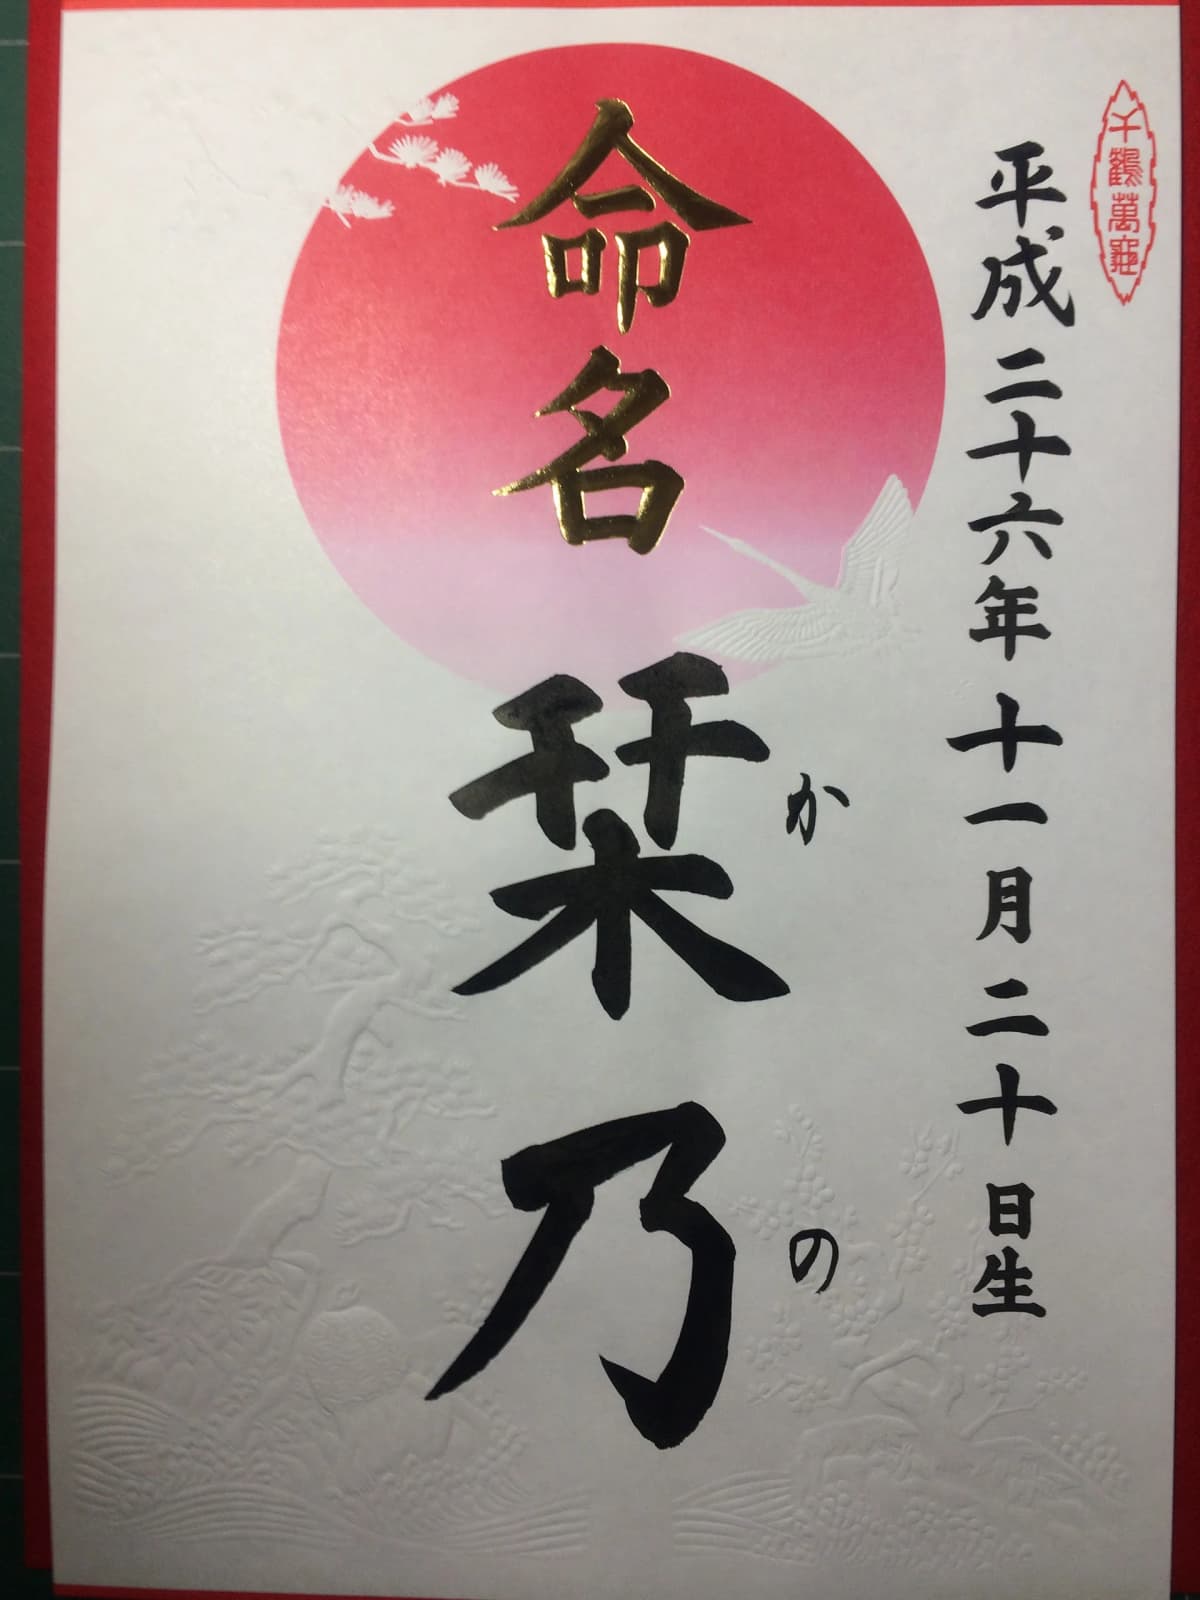 千鶴萬龜
平成二十六年十一月二十日生
命名
栞乃
かの